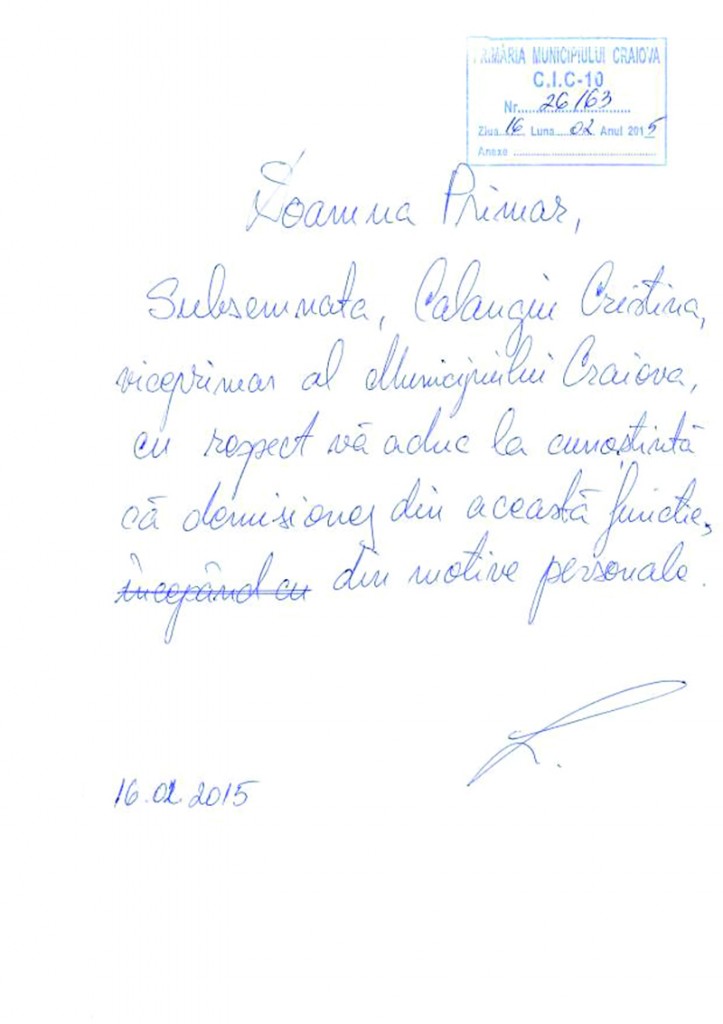 PRIMĂRIA MUNICIPIULUI CRAIOVA
C.I.C-10
Nr. 26163
Ziua 16 Luna 02 Anul 2015
Anexe
Doamna Primar,
Subsemnata, Calangiu Cristina,
viceprimar al Municipiului Craiova,
cu respect vă aduc la cunoștință
că demisionez din această funcție,
începând cu din motive personale.
16.02.2015